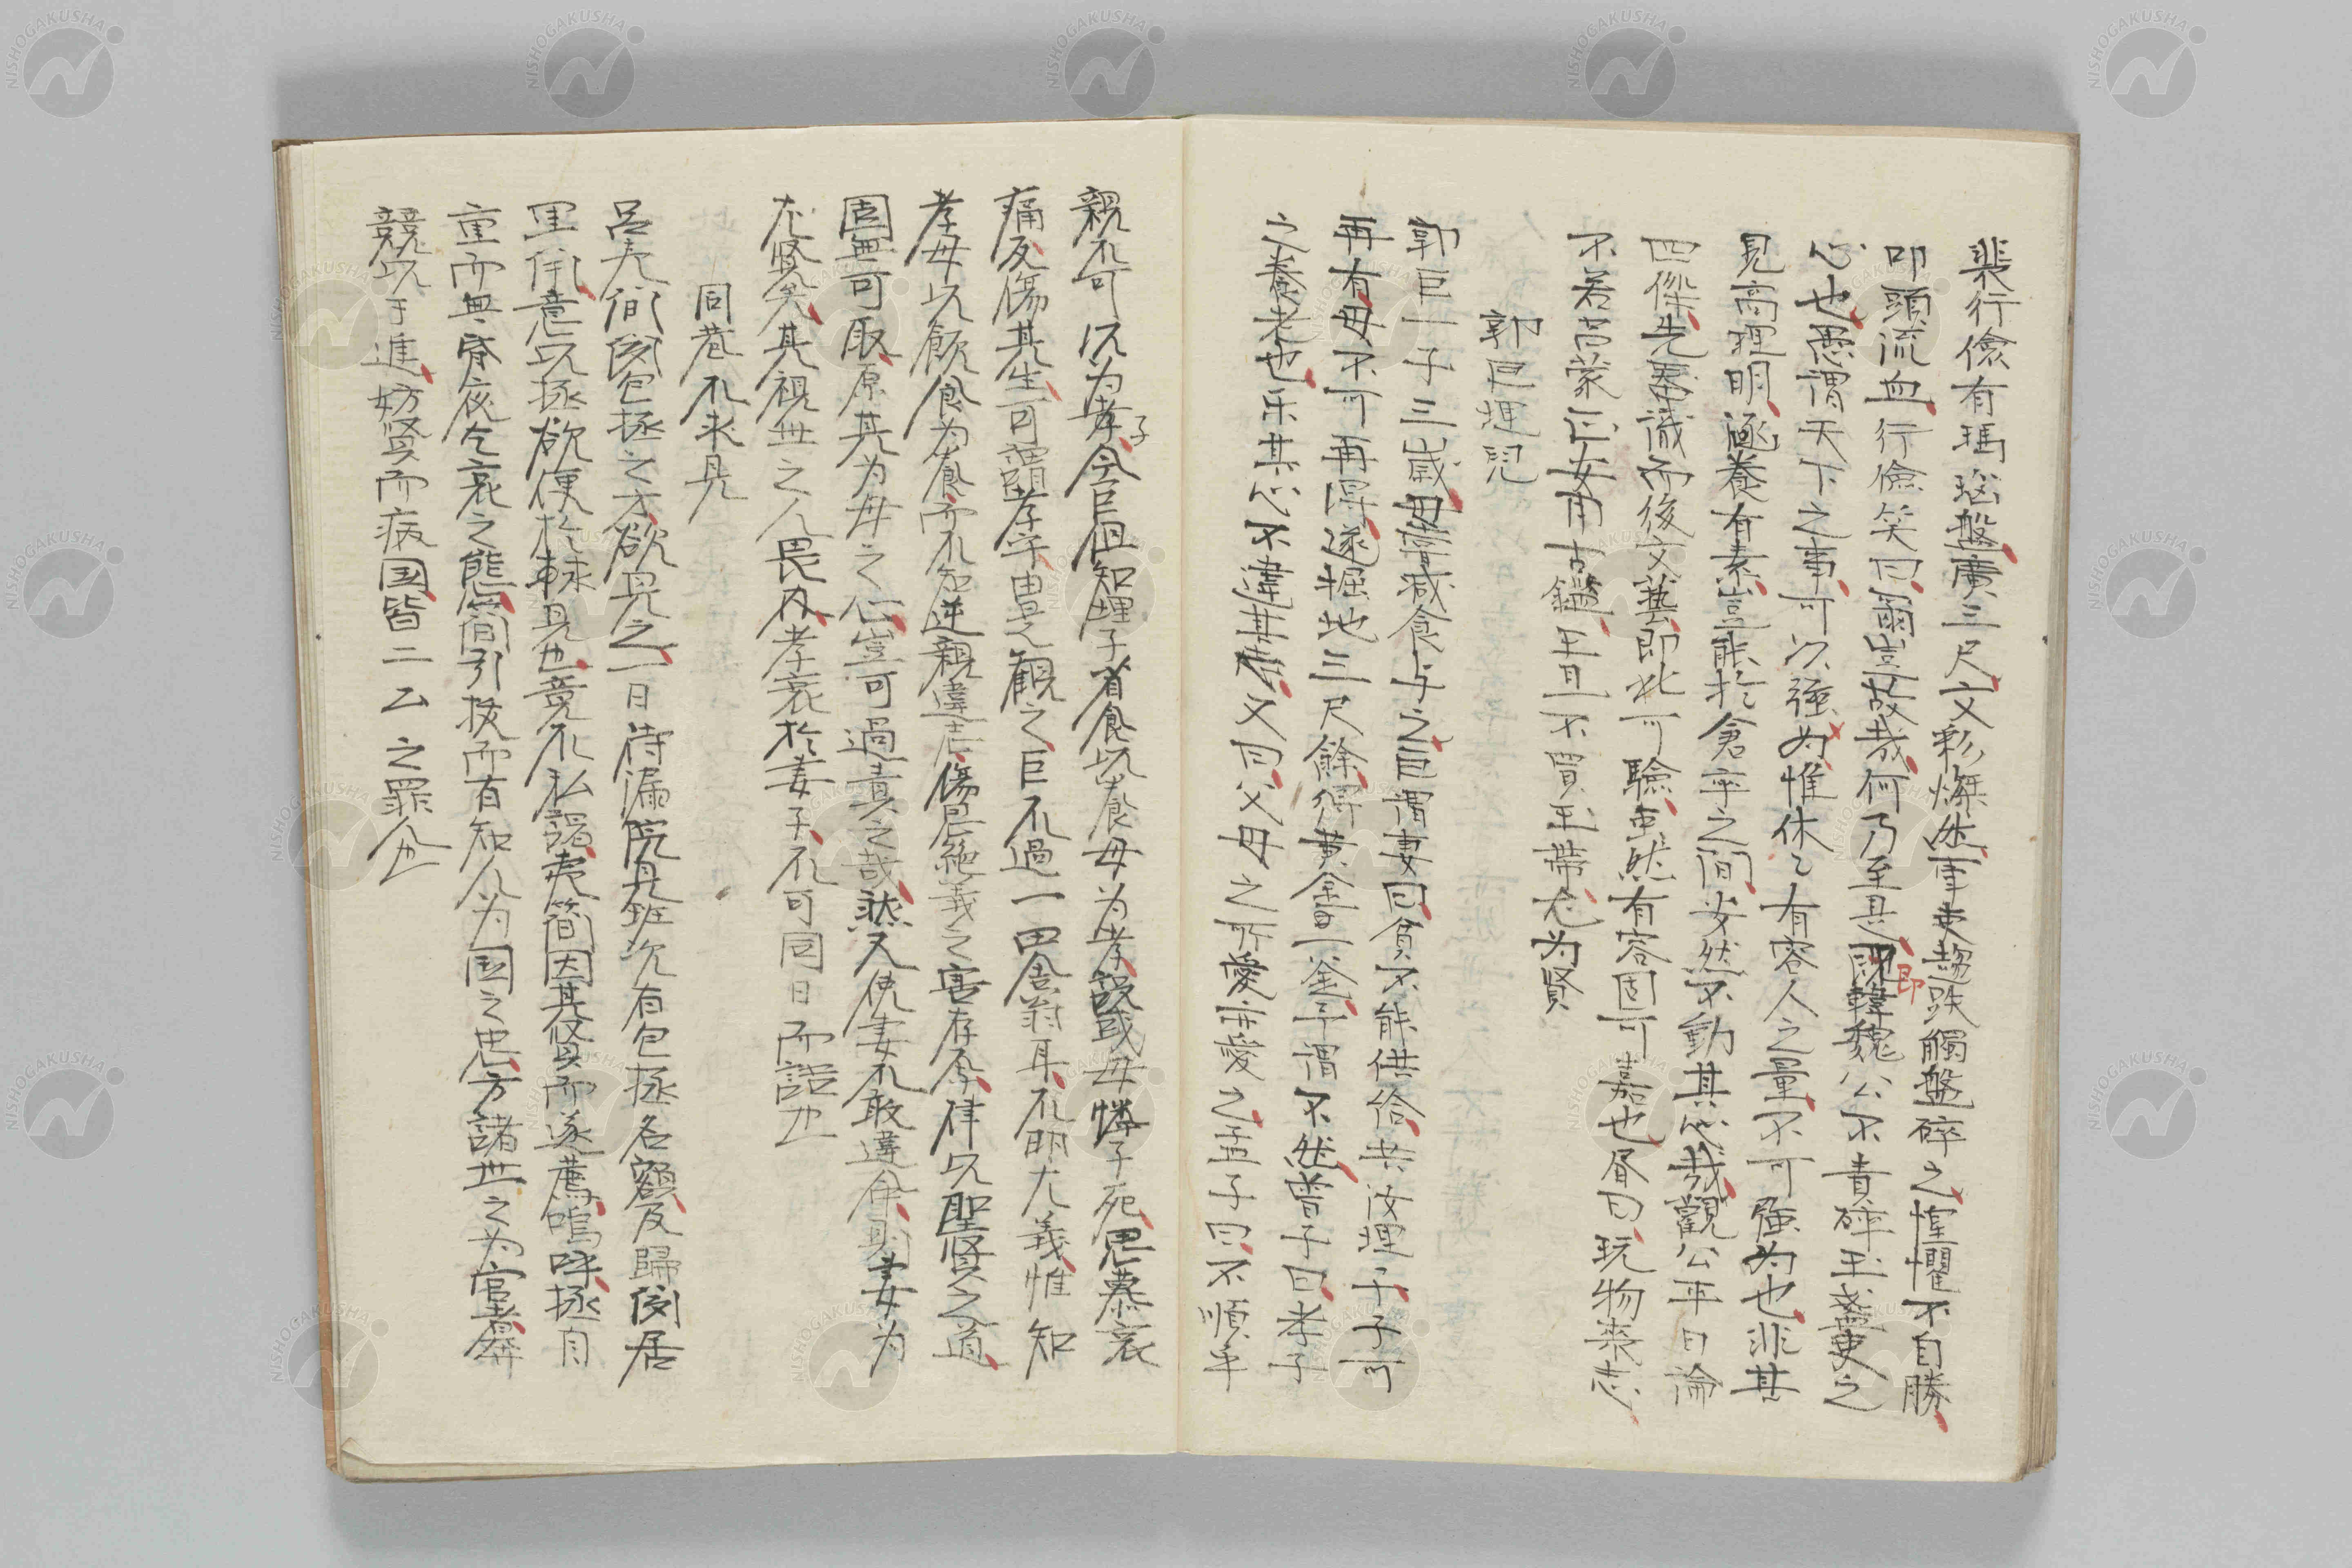 裴行儉有瑪瑙盤廣三尺文彩燦然軍吏趨跌觸盤碎之惶懼不自勝
叩頭流血行儉笑曰爾豈故哉何乃至是即韓魏公不責碎玉盞吏之
心也愚謂天下之事可以強為惟休〻有容人之量不可強為也非其
見高理明涵養有素豈能於倉卒之間安然不動其心哉觀公平日論
四傑先噐識而後文藝即此可驗虽然有容固可嘉也昼曰玩物喪志
不若呂蒙正女用古鑑王旦不買玉帶尤为賢
郭巨埋児
郭巨一子三歲母嘗减食与之巨謂妻曰貧不能供给共汝埋子子可
再有母不可再得遂掘地三尺餘得黄金一釜予謂不然曽子曰孝子
之養老也乐其心不違其志又曰父母之所愛亦愛之孟子曰不順乎
親不可以为孝子今巨但知埋子省食以養母为孝設或母憐子死思慕哀
痛反傷其生可謂孝乎由是觀之巨不過一田舍翁耳不明大義惟知
孝母以飲食为養而不知逆親違志傷恩絶義之害存焉律以聖贤之道
固無可取原其为母之心豈可過責之哉然又使妻不敢違命則妻为
尤贤矣其視世之人畏内孝衰於妻子不可同日而語也
同巷不求見
呂夷简闻包拯之才欲見之一日待漏院見班次有包拯名額及歸闻居
里巷意以拯欲便於求見也竟不私謁夷简因其贤而遂薦嗚呼拯自
重而無昏夜乞哀之態简引拔而有知人为国之忠方諸世之为宦者奔
競以于進妨贤而病国皆二公之罪人也